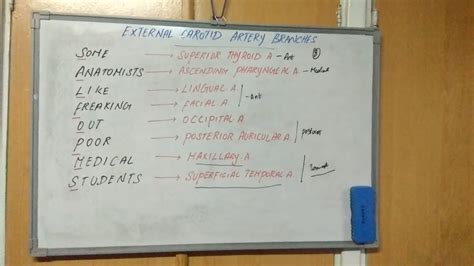 EXTERNAL CAROTID ARTERY BRANCHES
SOME → SUPERIOR THYROID A - Ant
ANATOMISTS → ASCENDING PHARYNGEAL A. - Medial
LIKE → LINGUAL A.
FREAKING → FACIAL A. - Ant
OUT → OCCIPITAL A.
POOR → POSTERIOR AURICULAR A.
MEDICAL → MAXILLARY A
STUDENTS → SUPERFICIAL TEMPORAL A.